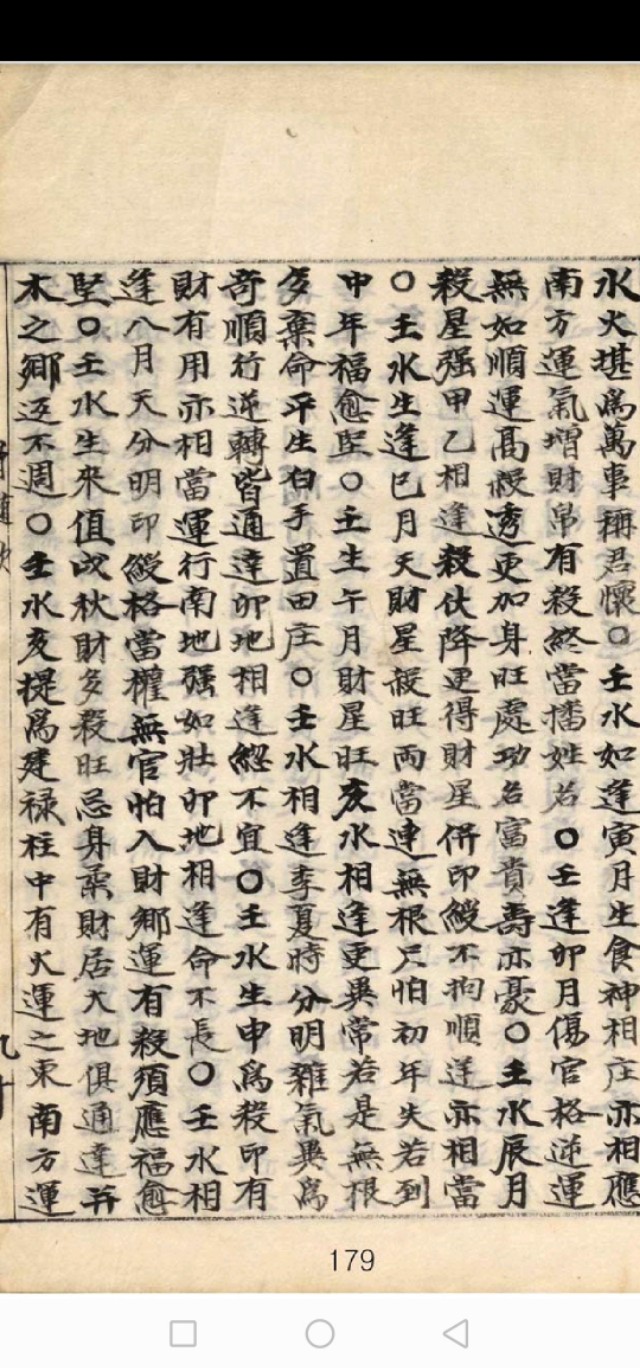 水火堪為萬事稱君懷○壬水如逢寅月生食神相庄亦相應
南方運氣增財帛有殺終當播姓名○壬逢卯月傷官格逆運
無如順運高殺透更加身旺處功名富貴壽亦豪○壬水辰月
殺星强甲乙相逢殺伏降運得財星併印綬不拘順逆亦相當
○壬水生逢巳月天財星殺旺両當連無根只怕初年失若到
申年福愈堅○壬生午月財星旺亥水相逢更異常若是無根
多棄命平生白手置田庄○壬水相逢季夏時分明雜氣異為
奇順行逆轉皆通達卯地相逢總不宜○壬水生申為殺印有
財有用亦相當運行南地强如壯卯地相逢命不長○壬水相
逢八月天分明印綬格當權無官怕入財鄉運有殺須應福愈
堅○壬水生來值戌秋財多殺旺忌身柔財居大地俱通達并
木之鄉返不週○壬水亥提為建禄柱中有火運之東南方運
179